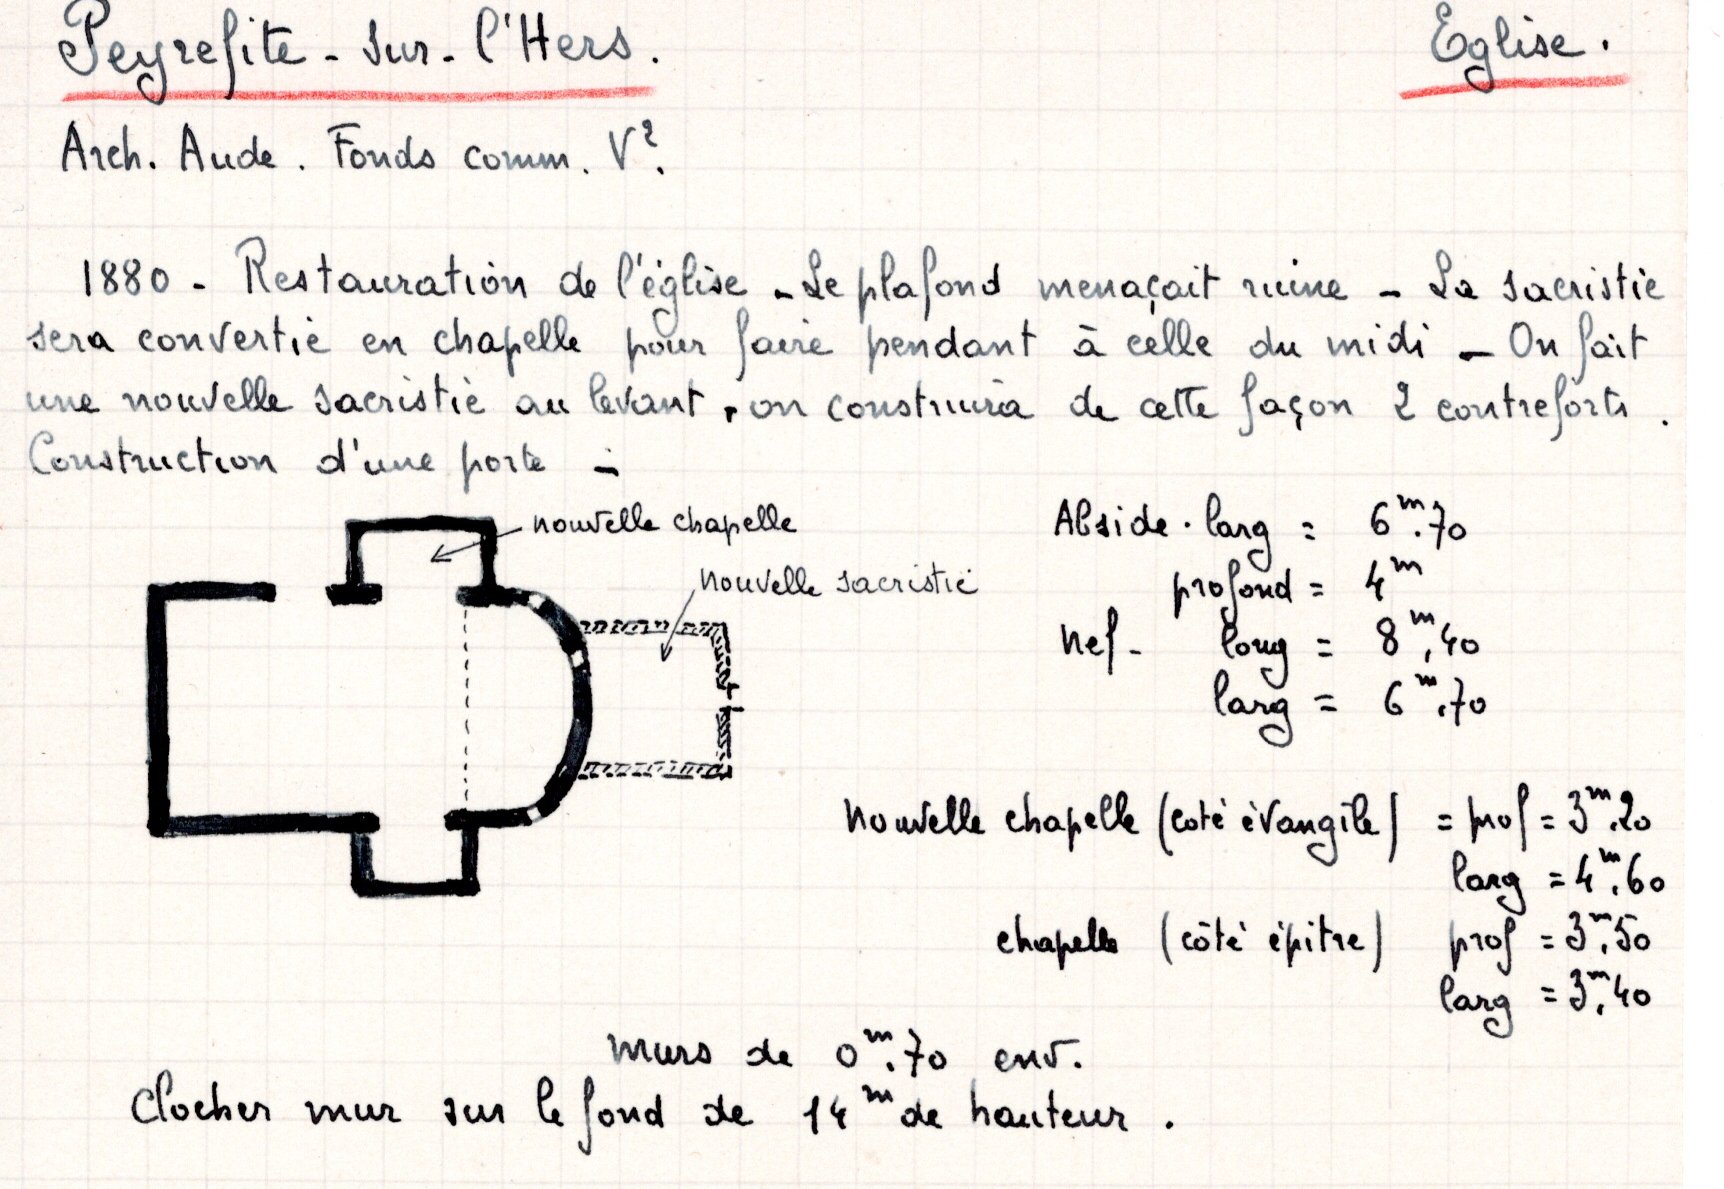 Peyrefite - sur - l'Hers. Eglise.
Arch. Aude. Fonds comm. V².
1880 - Restauration de l'église - Le plafond menaçait ruine - La sacristie
sera convertie en chapelle pour faire pendant à celle du midi - On fait
une nouvelle sacristie au levant, on construira de cette façon 2 contreforts.
Construction d'une porte -
nouvelle chapelle
nouvelle sacristie
Abside. larg = 6ᵐ.70
profond = 4ᵐ
Nef - long = 8ᵐ,40
larg = 6ᵐ.70
Nouvelle chapelle (coté évangile) = prof = 3ᵐ.20
larg = 4ᵐ.60
chapelle (côté épitre) prof = 3ᵐ.50
larg = 3ᵐ.40
murs de 0ᵐ.70 env.
Clocher mur sur le fond de 14ᵐ de hauteur.